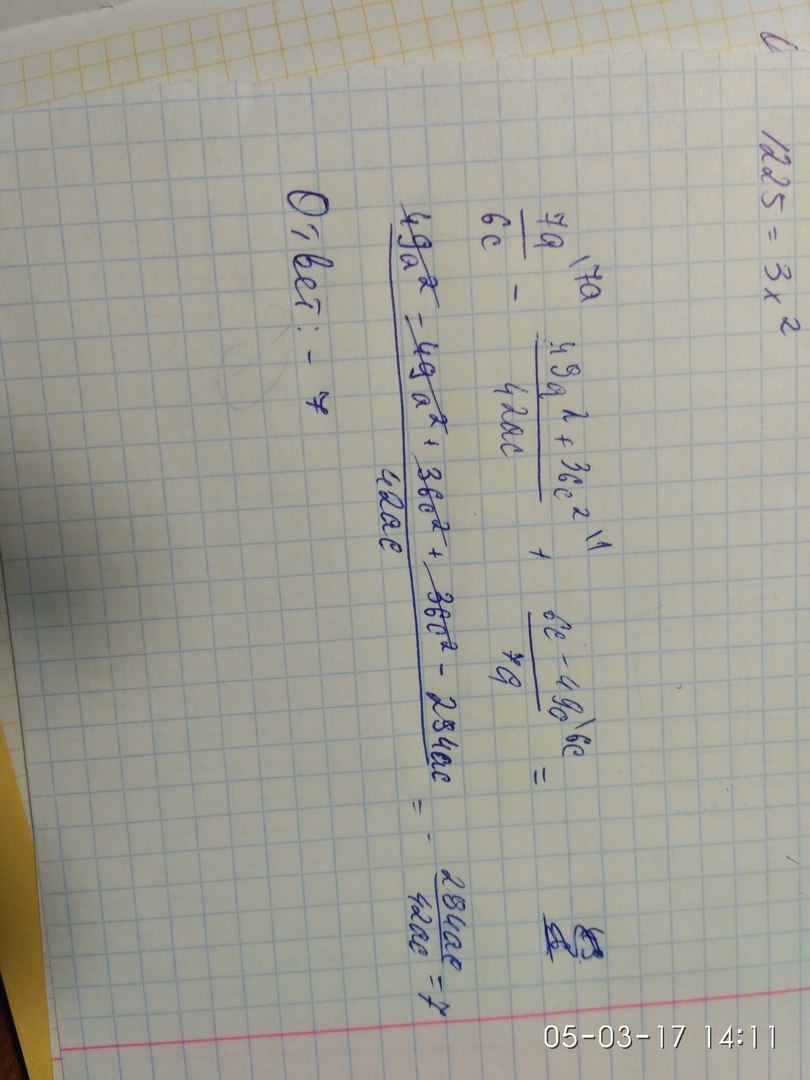 1225 = 3x²
7a\7a / 6c - 49a² + 36c²\1 / 42ac + 6c - 49a\6c / 7a =
49a² - 49a² + 36c² + 36c² - 294ac / 42ac = - 294ac / 42ac = 7
Ответ: - 7
05-03-17 14:11